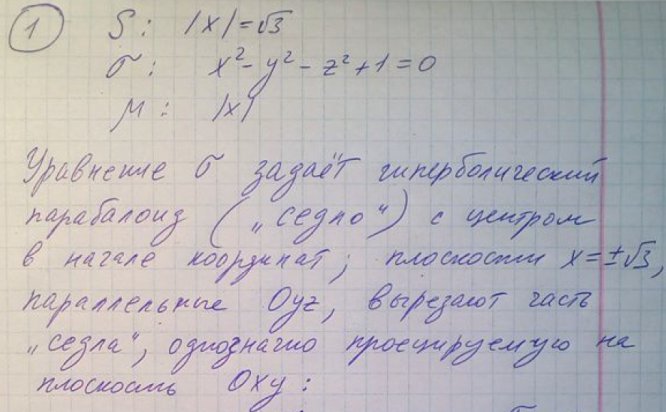 1 S: |x|=√3
σ: x²-y²-z²+1=0
μ: |x|
Уравнение σ задаёт гиперболический
парабалоид („седло“) с центром
в начале координат; плоскости x=±√3,
параллельные Oyz, вырезают часть
„седла“, однозначно проецируемую на
плоскость Oxy: